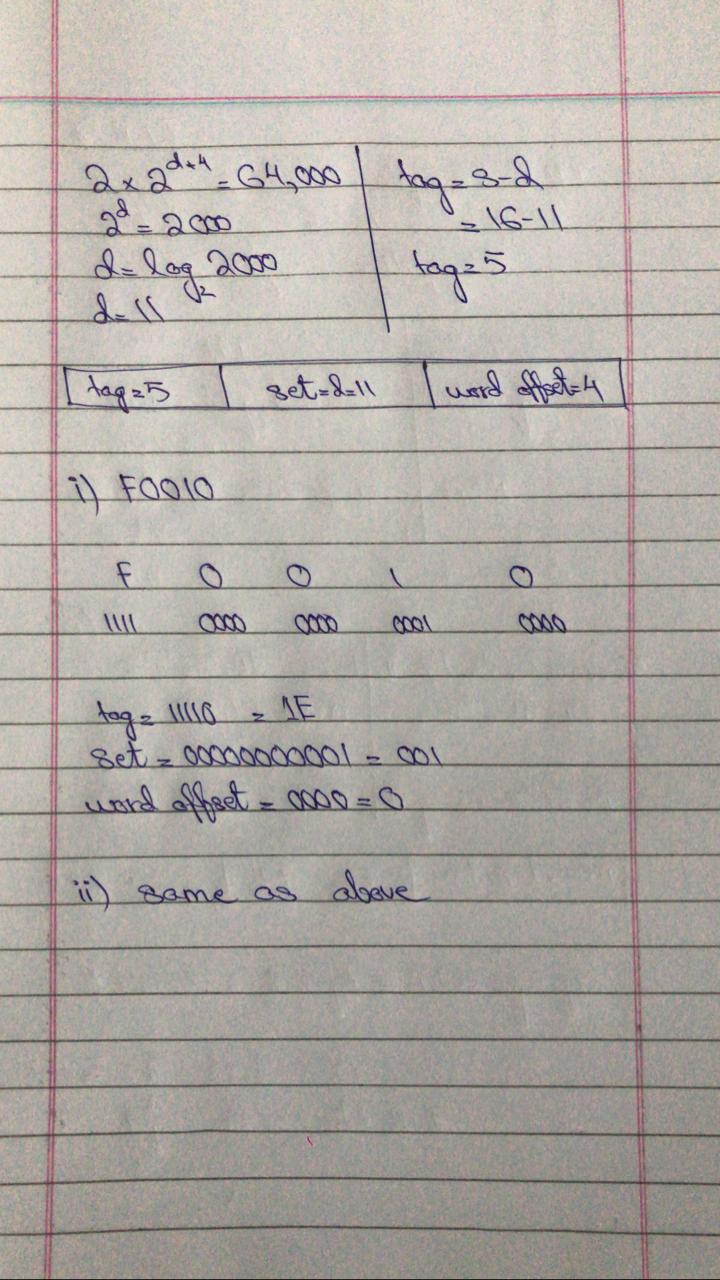 2 × 2^{d+4} = 64,000
2^d = 2000
d = log₂ 2000
d = 11
tag = s-d
= 16-11
tag = 5
tag = 5 | set = d = 11 | word offset = 4
i) F0010
F 0 0 1 0
1111 0000 0000 0001 0000
tag = 11110 = 1E
set = 00000000001 = 001
word offset = 0000 = 0
ii) same as above